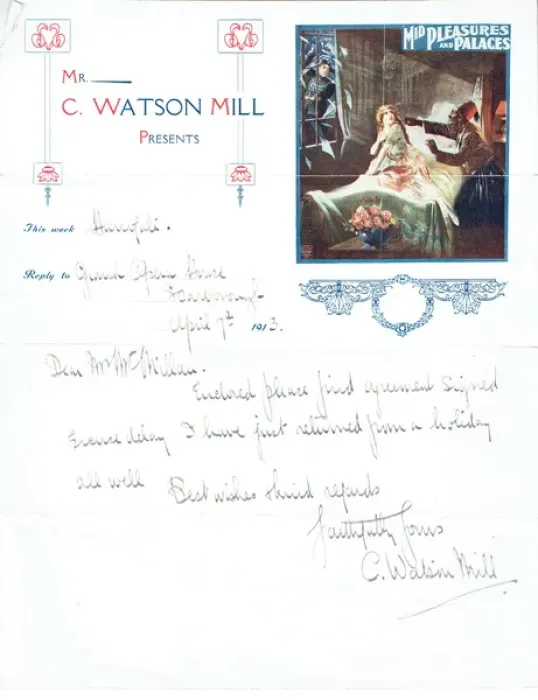 Mr.
C. Watson Mill
Presents
Mid Pleasures
and Palaces
This week
Reply to Grand Opera House
Scarborough
April 7th 1913.
Dear Mr McMillan.
Enclosed please find agreement signed
Excuse delay I have just returned from a holiday
all well Best wishes & kind regards
Faithfully Yours
C. Watson Mill